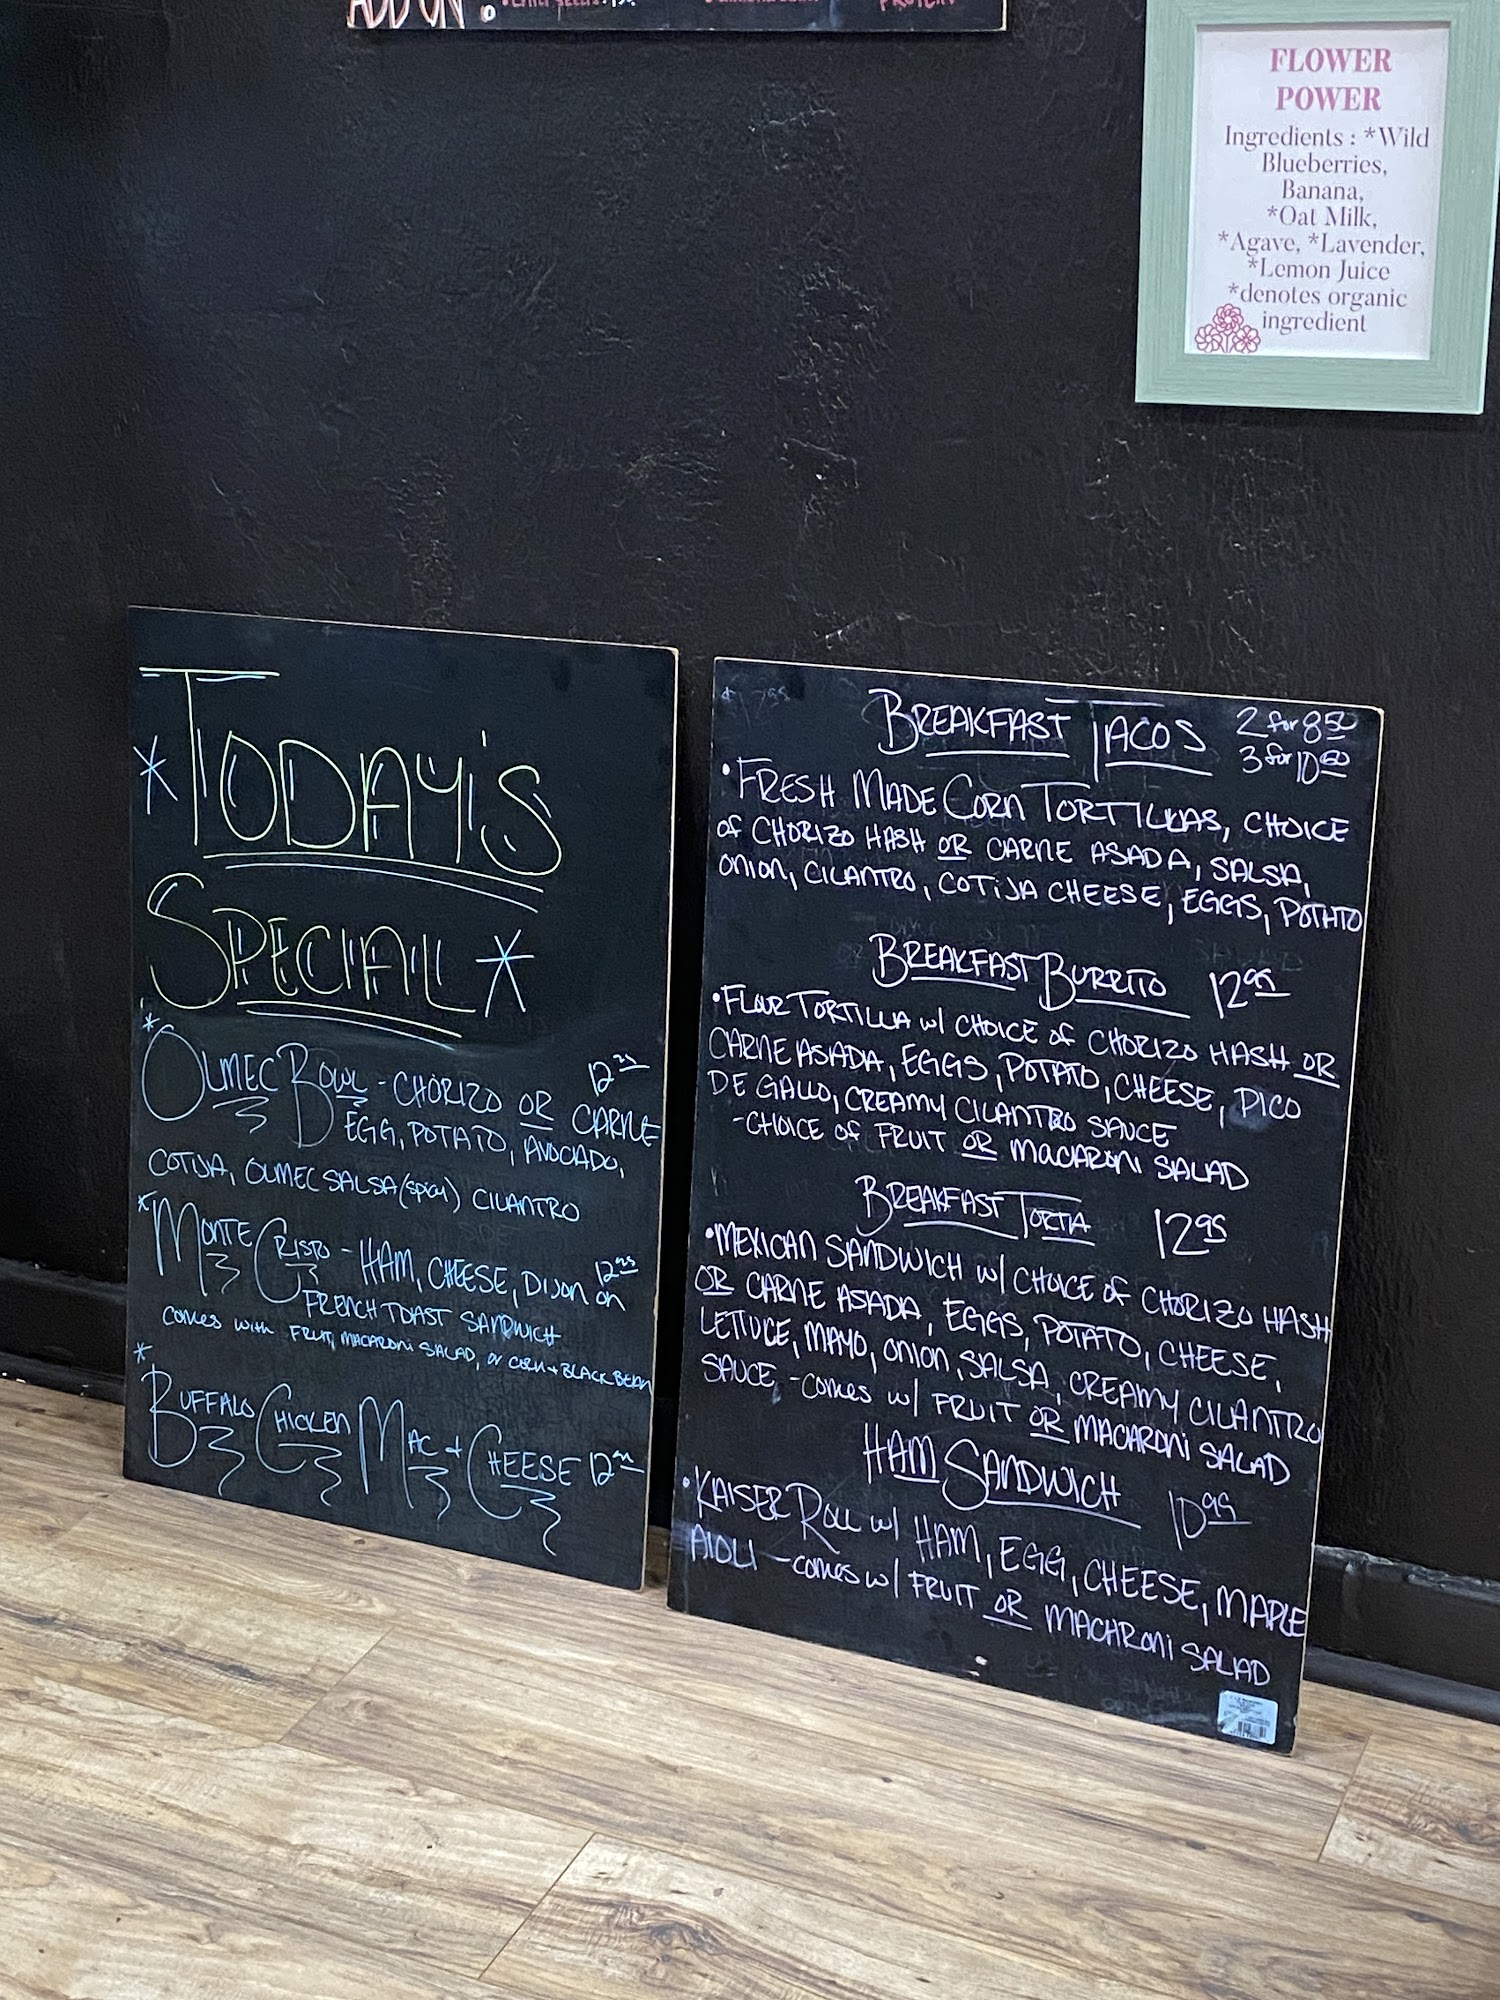 ADD ON
FLOWER
POWER
Ingredients : *Wild
Blueberries,
Banana,
*Oat Milk,
*Agave, *Lavender,
*Lemon Juice
*denotes organic
ingredient
*TODAY'S
SPECIAL*
*OLMEC BOWL - CHORIZO OR CARNE
EGG, POTATO, AVOCADO,
COTIJA, OLMEC SALSA (spicy) CILANTRO
*MONTE CRISTO - HAM, CHEESE, DIJON on
FRENCH TOAST SANDWICH
comes with FRUIT, MACARONI SALAD, or CORN + BLACK BEAN
*
BUFFALO CHICKEN MAC + CHEESE
BREAKFAST TACOS 2 for 8 50
3 for 10
• FRESH MADE CORN TORTILLAS, CHOICE
of CHORIZO HASH OR CARNE ASADA, SALSA,
ONION, CILANTRO, COTIJA CHEESE, EGGS, POTATO
BREAKFAST BURRITO 12 95
• FLOUR TORTILLA w/ CHOICE of CHORIZO HASH OR
CARNE ASADA, EGGS, POTATO, CHEESE, PICO
DE GALLO, CREAMY CILANTRO SAUCE
-CHOICE OF FRUIT OR MACARONI SALAD
BREAKFAST TORTA 12 95
• MEXICAN SANDWICH w/ CHOICE of CHORIZO HASH
OR CARNE ASADA, EGGS, POTATO, CHEESE,
LETTUCE, MAYO, ONION, SALSA, CREAMY CILANTRO
SAUCE, -comes w/ FRUIT OR MACARONI SALAD
HAM SANDWICH 10 95
• KAISER ROLL w/ HAM, EGG, CHEESE, MAPLE
AIOLI -comes w/ FRUIT OR MACARONI SALAD